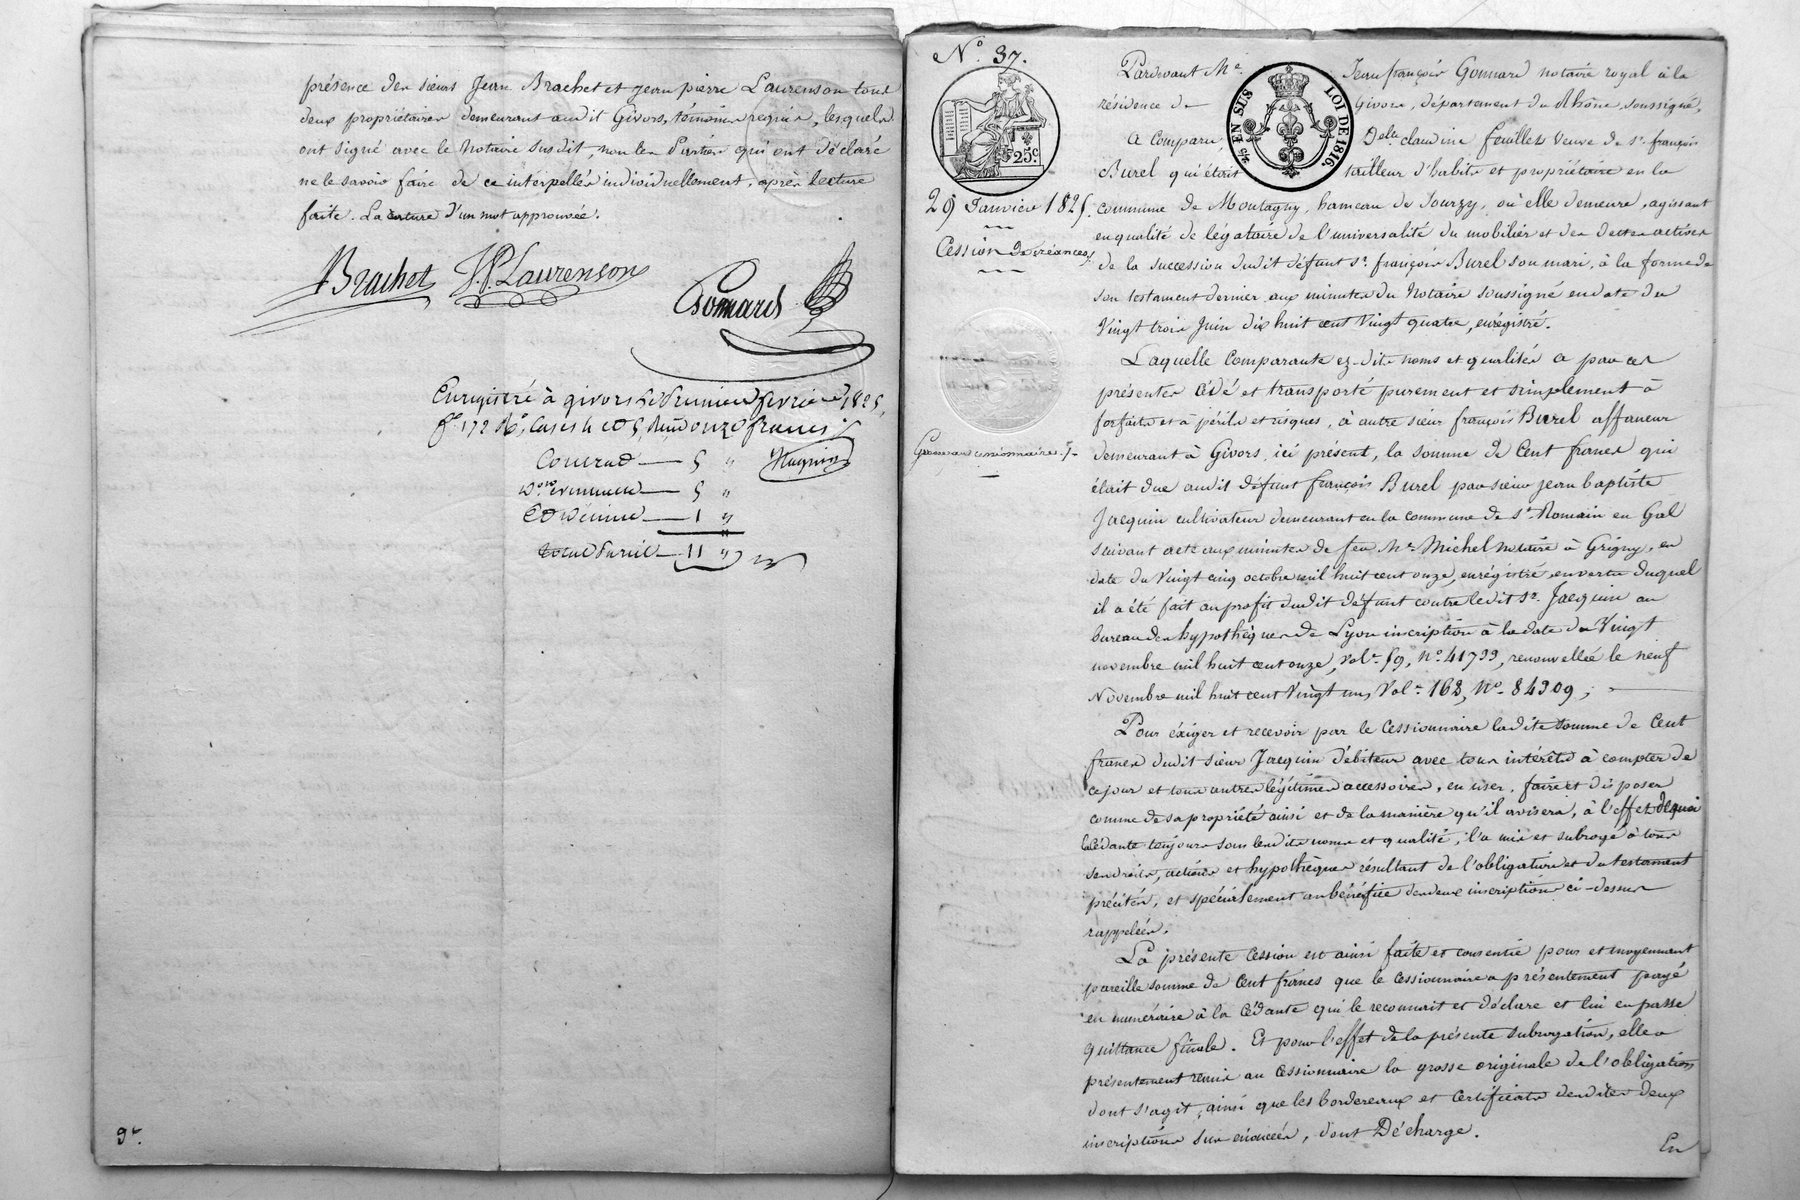 présence des sieurs Jean Brachet et Jean pierre Laurenson tous
deux propriétaires demeurant audit Givors, témoins requis, lesquels
ont signé avec le Notaire susdit, non les Parties qui ont déclaré
ne le savoir faire de ce interpellés individuellement, après lecture
faite. La rature d'un mot approuvée.
Brachet J.P. Laurenson
Gonnard
Enregistré à givors le premier février 1825,
f° 172 R° Cases 4 et 5, Reçu onze francs
5 "
5 "
Et décime 1 "
Total 11 "
9e.
N° 37.
25c
¼ EN SUS LOI DE 1816.
29 Janvier 1825.
Cession de créances.
Grosse au cessionnaire.
Pardevant Me. Jean françois Gonnard notaire royal à la
résidence de Givors, département du Rhône, soussigné,
A comparu Delle claudine feuillet veuve de sr. françois
Burel qui était tailleur d'habits et propriétaire en la
commune de Montagny, hameau de Sourzy, où elle demeure, agissant
en qualité de légataire de l'universalité du mobilier et des dettes actives
de la succession dudit défunt sr. françois Burel son mari, à la forme de
son testament dernier aux minutes du Notaire soussigné en date du
Vingt trois Juin dix huit cent Vingt quatre, enrégistré.
Laquelle comparante ez-dits noms et qualités a par ces
présentes cédé et transporté purement et simplement à
forfaits et à périls et risques, à autre sieur françois Burel affaneur
demeurant à Givors, ici présent, la somme de Cent francs qui
était due audit défunt françois Burel par sieur jean baptiste
Jacquin cultivateur demeurant en la commune de St. Romain en Gal
suivant acte aux minutes de feu Me. Michel notaire à Grigny, en
date du Vingt cinq octobre mil huit cent onze, enrégistré, en vertu duquel
il a été fait au profit dudit défunt contre ledit Sr. Jacquin au
bureau des hypothèques de Lyon inscription à la date du Vingt
novembre mil huit cent onze, vole. 59, n°. 41799, renouvellée le neuf
Novembre mil huit cent Vingt un, Vol. 163, N°. 84309;
Pour éxiger et recevoir par le Cessionnaire ladite somme de Cent
francs dudit sieur Jacquin débiteur avec tous intérêts à compter de
ce jour et tous autres légitimes accessoires, en user, faire et disposer
comme de sa propriété ainsi et de la manière qu'il avisera, à l'effet de quoi
la Cédante toujours sous lesdits noms et qualité, l'a mis et subrogé à tous
ses droits, actions et hypothèques résultant de l'obligation et du testament
précités, et spécialement au bénéfice des deux inscriptions ci-dessus
rappelées.
La présente Cession est ainsi faite et consentie pour et moyennant
pareille somme de Cent francs que le Cessionnaire a présentement payé
en numéraire à la Cédante qui le reconnait et déclare et lui en passe
quittance finale. Et pour l'effet de la présente subrogation, elle a
présentement remis au Cessionnaire la grosse originale de l'obligation
dont s'agit, ainsi que les bordereaux et Certificats desdites deux
inscriptions sus énoncées, dont Décharge.
En